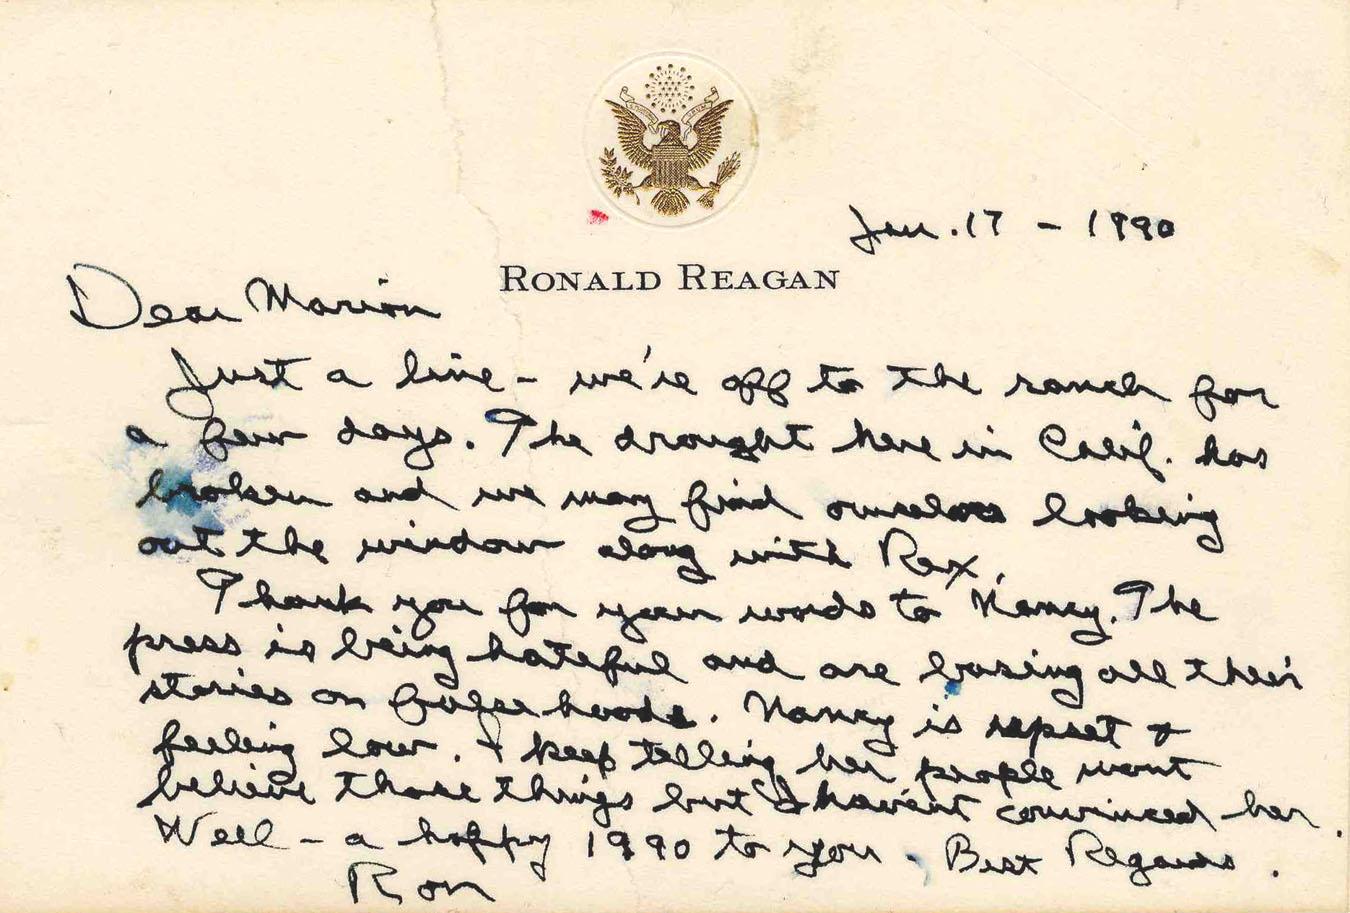 Jan. 17 - 1990
RONALD REAGAN
Dear Marion
Just a line - we're off to the ranch for
a few days. The drought here in Calif. has
broken and we may find ourselves looking
out the window along with Rex.
Thank you for your words to Nancy. The
press is being hateful and are basing all their
stories on falsehoods. Nancy is upset &
feeling low. I keep telling her people wont
believe those things but I haven't convinced her.
Well - a happy 1990 to you. Best Regards.
Ron